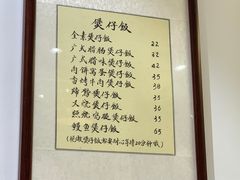 煲仔飯
全素煲仔飯 22
广式腊肠煲仔飯 32
广式腊味煲仔飯 42
肉饼窝蛋煲仔飯 35
香烤牛肉煲仔飯 38
排骨煲仔飯 35
叉烧煲仔飯 36
煲仔飯 35
鳗鱼煲仔飯 65